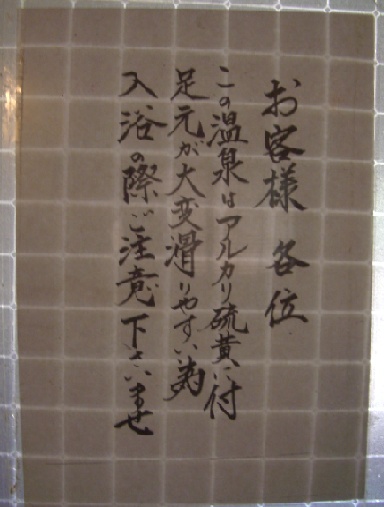 お客様 各位
この温泉はアルカリ硫黄に付
足元が大変滑りやすい為
入浴の際ご注意下さいませ